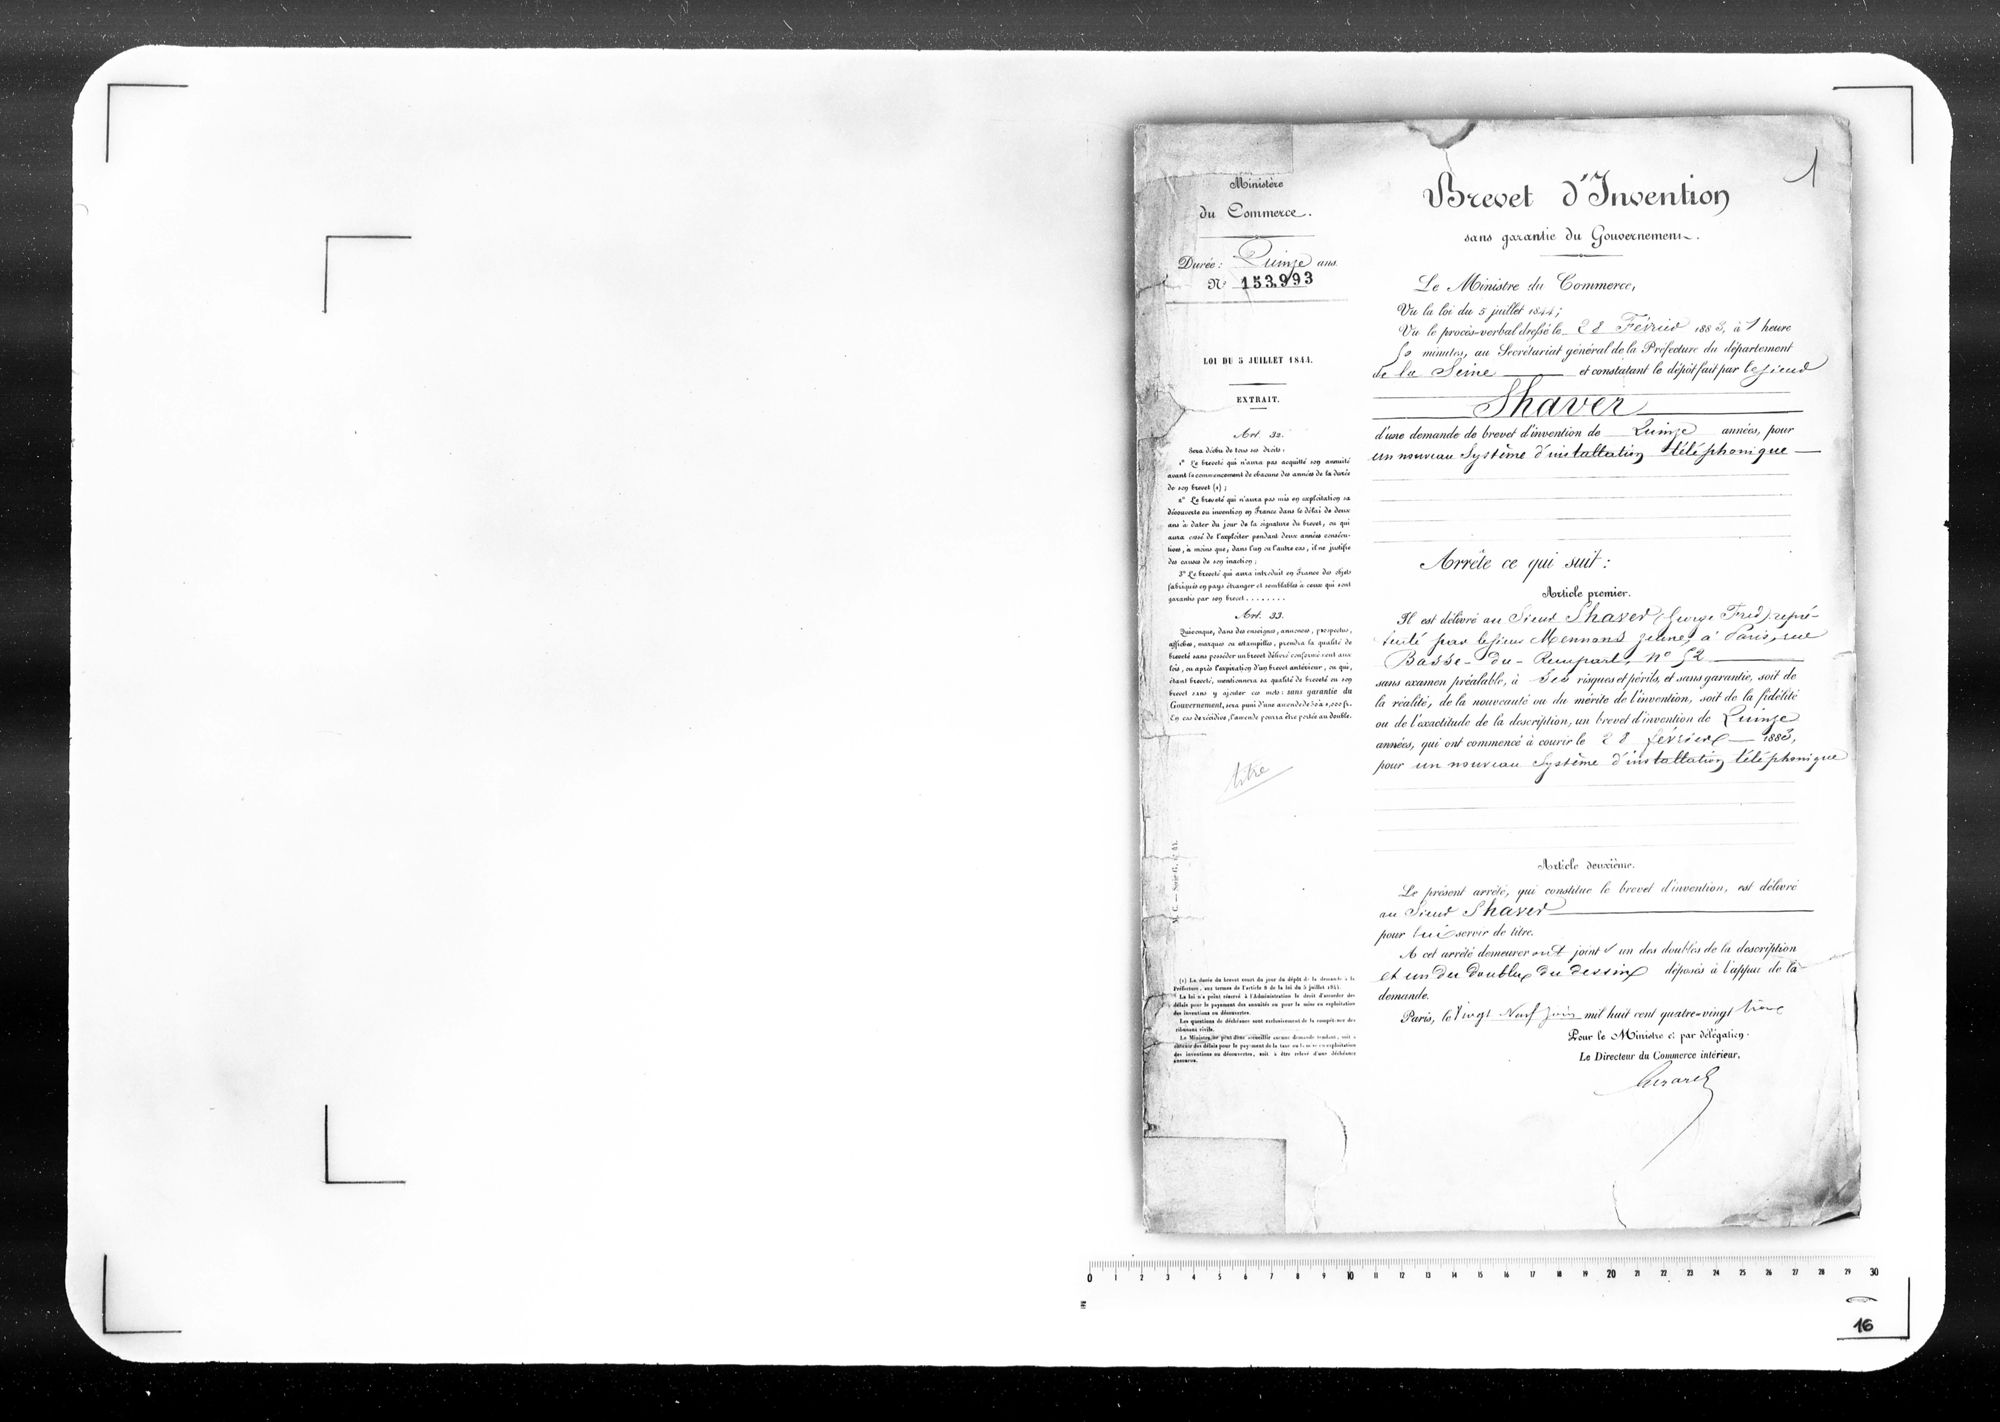 Ministère
du Commerce.
Durée: Quinze ans.
N° 153,993
LOI DU 5 JUILLET 1844.
EXTRAIT.
Art. 32.
Sera déchu de tous ses droits:
1° Le breveté qui n'aura pas acquitté son annuité
avant le commencement de chacune des années de la durée
de son brevet (1);
2° Le breveté qui n'aura pas mis en exploitation sa
découverte ou invention en France dans le délai de deux
ans à dater du jour de la signature du brevet, ou qui
aura cessé de l'exploiter pendant deux années consécu-
tives, à moins que, dans l'un ou l'autre cas, il ne justifie
des causes de son inaction;
3° Le breveté qui aura introduit en France des objets
fabriqués en pays étranger et semblables à ceux qui sont
garantis par son brevet........
Art. 33.
Quiconque, dans des enseignes, annonces, prospectus,
affiches, marques ou estampilles, prendra la qualité de
breveté sans posséder un brevet délivré conformément aux
lois, ou après l'expiration d'un brevet antérieur, ou qui,
étant breveté, mentionnera sa qualité de breveté ou son
brevet sans y ajouter ces mots: sans garantie du
Gouvernement, sera puni d'une amende de 50 à 1,000 fr.
En cas de récidive, l'amende pourra être portée au double.
titre
(1) La durée du brevet court du jour du dépôt de la demande à la
Préfecture, aux termes de l'article 8 de la loi du 5 juillet 1844.
La loi n'a point réservé à l'Administration le droit d'accorder des
délais pour le payement des annuités ou pour la mise en exploitation
des inventions ou découvertes.
Les questions de déchéance sont exclusivement de la compétence des
tribunaux civils.
Le Ministre ne peut donc accueillir aucune demande tendant, soit à
obtenir des délais pour le payement de la taxe ou la mise en exploitation
des inventions ou découvertes, soit à être relevé d'une déchéance
encourue.
1
Brevet d'Invention
sans garantie du Gouvernement.
Le Ministre du Commerce,
Vu la loi du 5 juillet 1844;
Vu le procès-verbal dressé le 28 Février 1883, à 1 heure
50 minutes, au Secrétariat général de la Préfecture du département
de la Seine et constatant le dépôt fait par le sieur
Shaver
d'une demande de brevet d'invention de Quinze années, pour
un nouveau Système d'installation téléphonique
Arrête ce qui suit:
Article premier.
Il est délivré au Sieur Shaver (George Fred) repré-
senté par le sieur Mennons jeune, à Paris, rue
Basse-du-Rempart, n° 52
sans examen préalable, à ses risques et périls, et sans garantie, soit de
la réalité, de la nouveauté ou du mérite de l'invention, soit de la fidélité
ou de l'exactitude de la description, un brevet d'invention de Quinze
années, qui ont commencé à courir le 28 février 1883,
pour un nouveau Système d'installation téléphonique
Article deuxième.
Le présent arrêté, qui constitue le brevet d'invention, est délivré
au Sieur Shaver
pour lui servir de titre.
A cet arrêté demeureront joints un des doubles de la description
et un des doubles du dessin déposés à l'appui de la
demande.
Paris, le Vingt Neuf Juin mil huit cent quatre-vingt trois
Pour le Ministre et par délégation.
Le Directeur du Commerce intérieur,
0 1 2 3 4 5 6 7 8 9 10 11 12 13 14 15 16 17 18 19 20 21 22 23 24 25 26 27 28 29 30
16